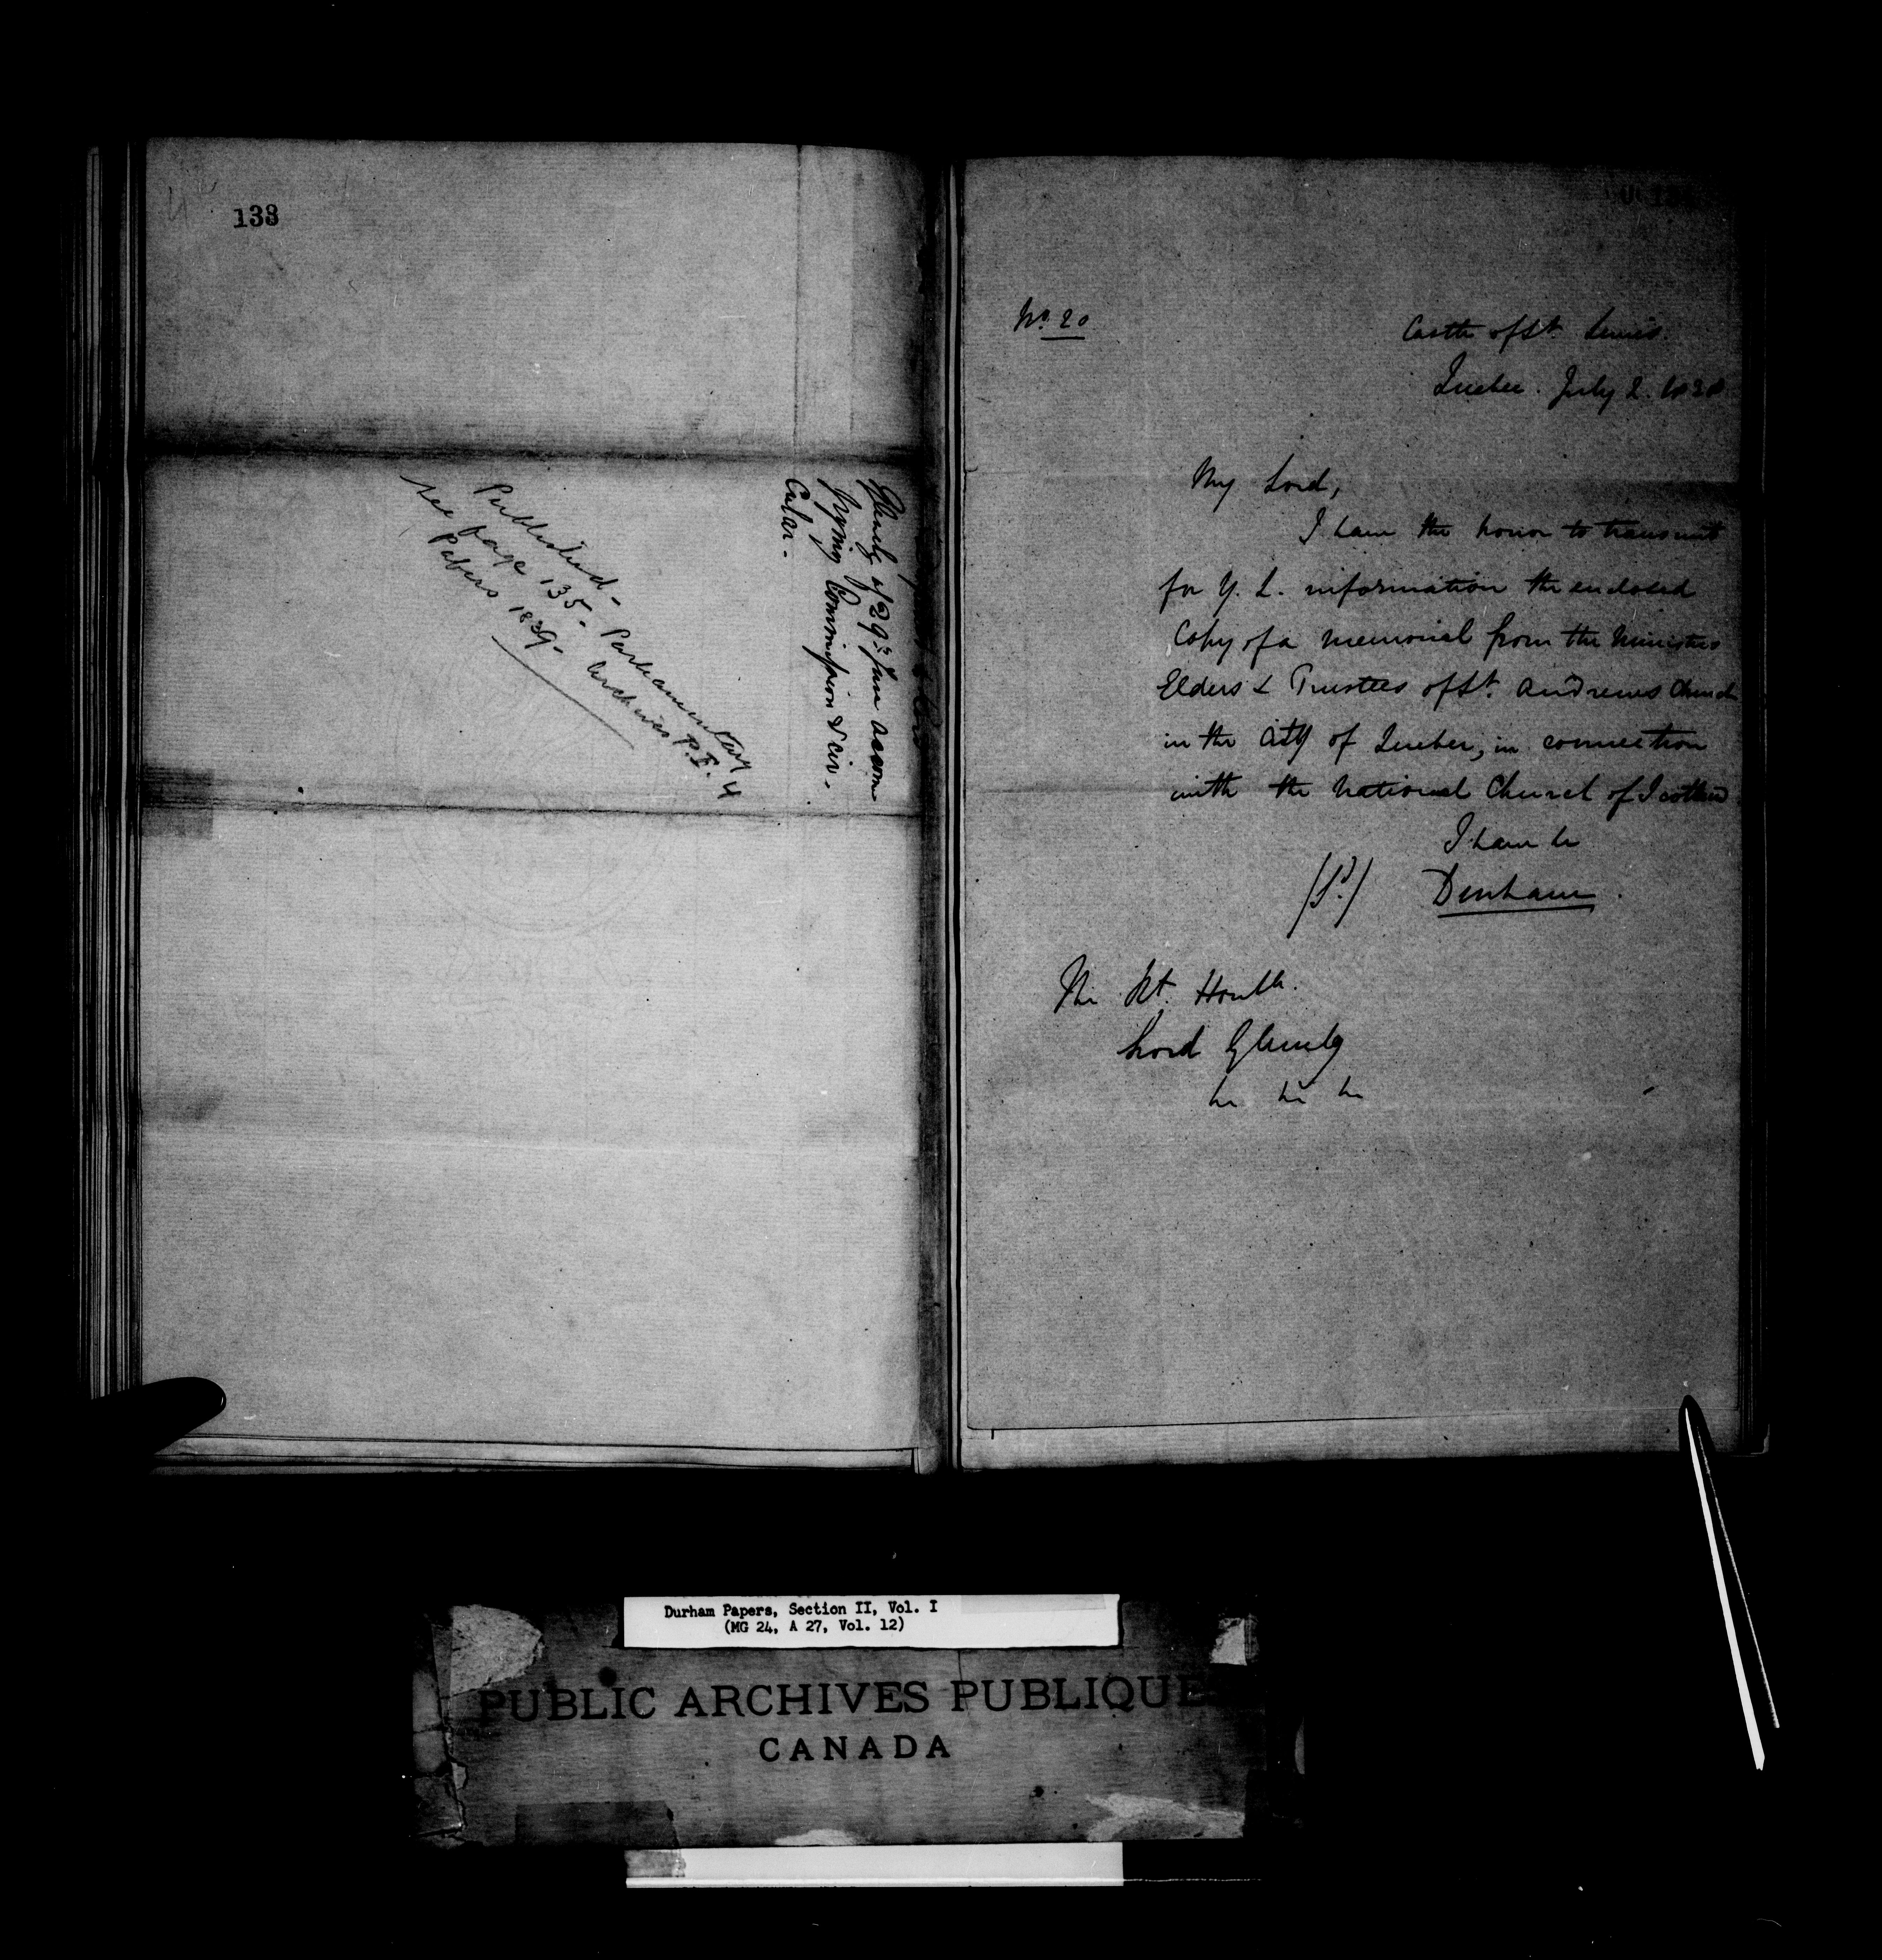 138
Glenelg of 29th June accom
panying Commission & cir-
cular.
Published-
see page 135- Parliamentary
Papers 1839- Archives P.I. 4
No. 20
Castle of St. Lewis.
Quebec. July 2. 1838
My Lord,
I have the honor to transmit
for Y. L. information the enclosed
Copy of a memorial from the Minister
Elders & Trustees of St. Andrews Church
in the City of Quebec, in connection
with the National Church of Scotland
I have &c
(Sd.) Durham.
The Rt. Honble.
Lord Glenelg
&c &c &c
Durham Papers, Section II, Vol. I
(MG 24, A 27, Vol. 12)
PUBLIC ARCHIVES PUBLIQUE
CANADA